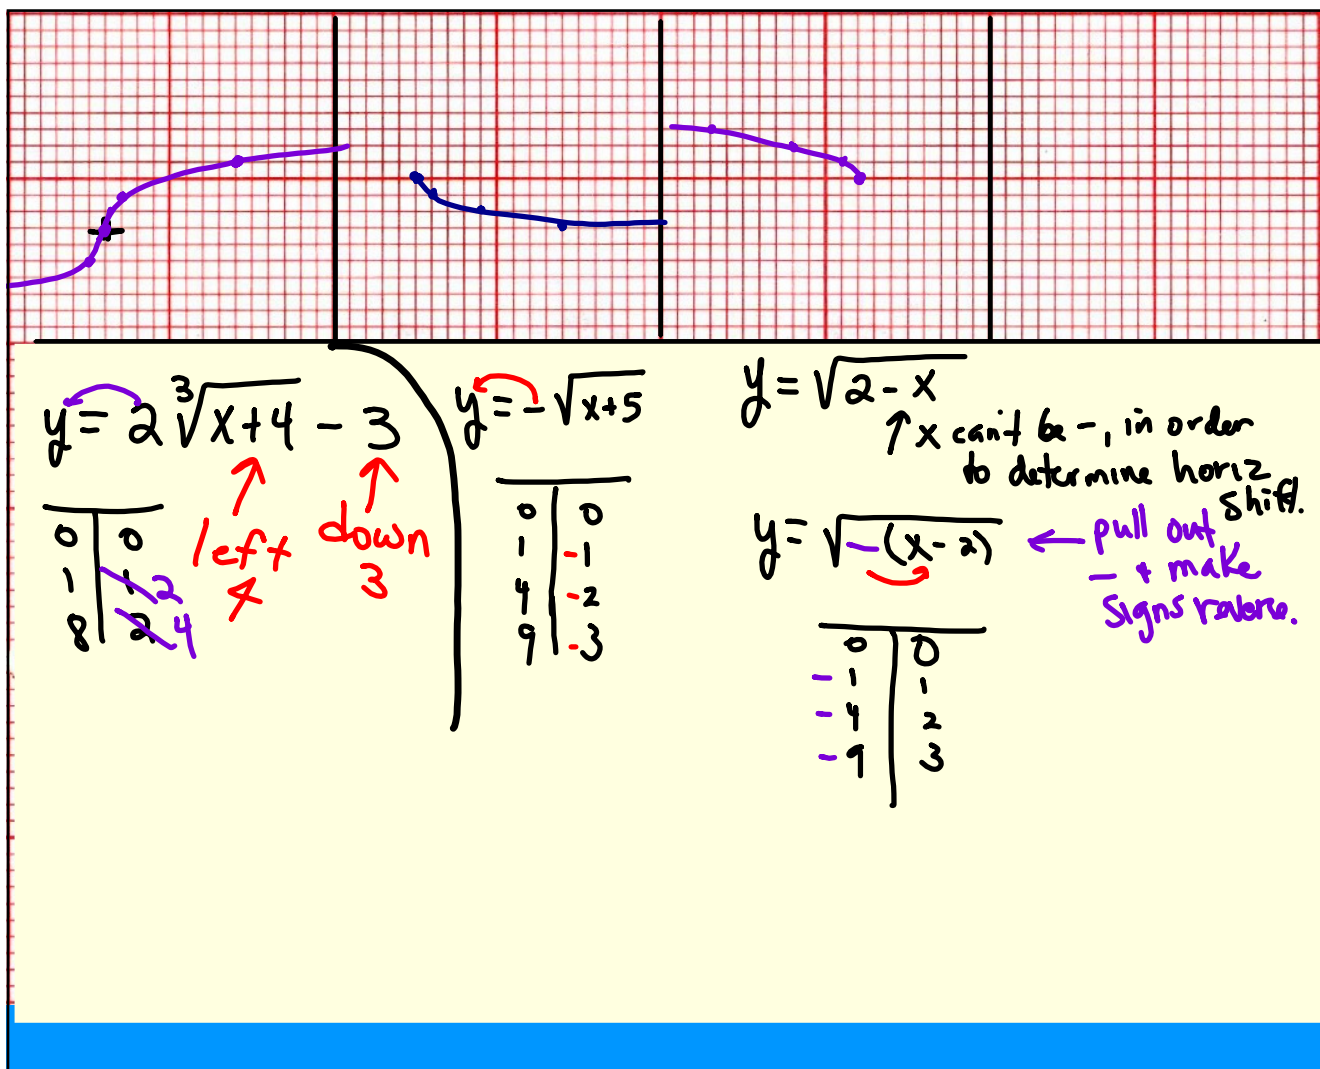 y = 2 ∛(x+4) - 3
left 4
down 3
0 | 0
1 | 1 2
8 | 2 4
y = - √(x+5)
0 | 0
1 | - 1
4 | - 2
9 | - 3
y = √(2 - x)
↑ x can't be -, in order
to determine horiz
shift.
y = √(-(x - 2)) ← pull out
- + make
signs reverse.
0 | 0
- 1 | 1
- 4 | 2
- 9 | 3